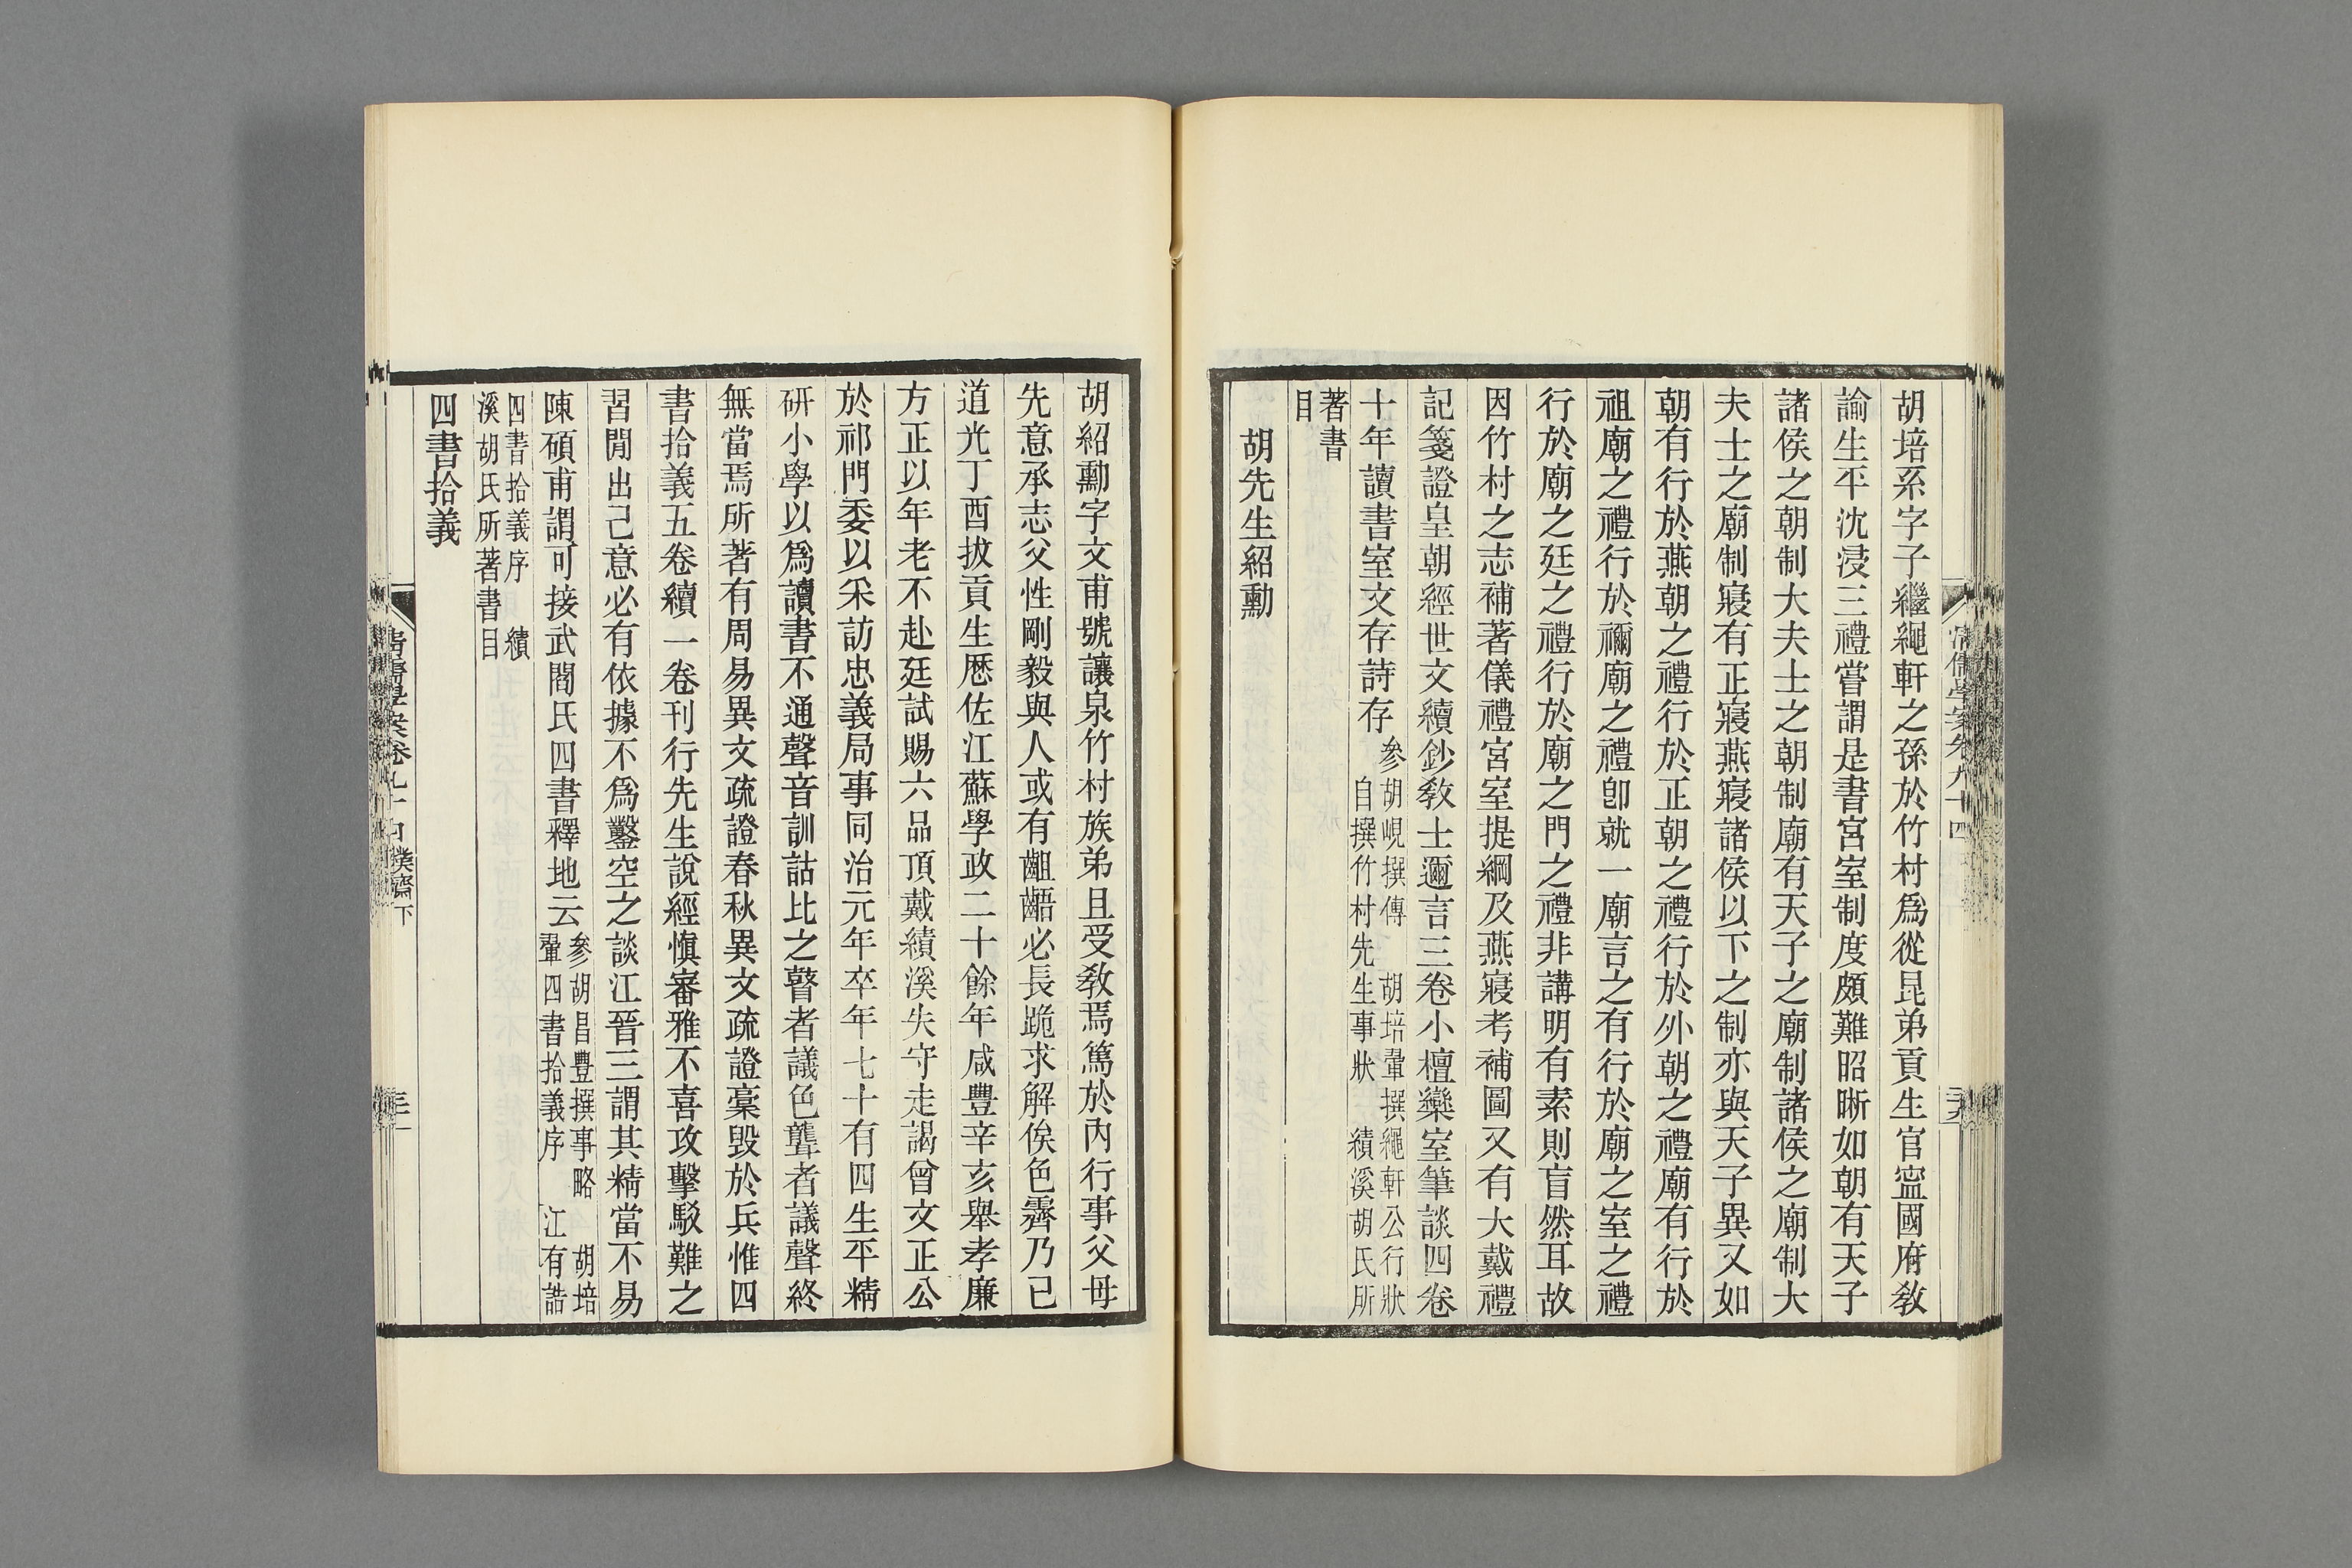 胡培系字子繼繩軒之孫於竹村爲從昆弟貢生官寍國府敎
諭生平沈浸三禮嘗謂是書宮室制度頗難昭晰如朝有天子
諸侯之朝制大夫士之朝制廟有天子之廟制諸侯之廟制大
夫士之廟制寢有正寢燕寢諸侯以下之制亦與天子異又如
朝有行於燕朝之禮行於正朝之禮行於外朝之禮廟有行於
祖廟之禮行於禰廟之禮卽就一廟言之有行於廟之室之禮
行於廟之廷之禮行於廟之門之禮非講明有素則盲然耳故
因竹村之志補著儀禮宮室提綱及燕寢考補圖又有大戴禮
記箋證皇朝經世文續鈔敎士邇言三卷小檀欒室筆談四卷
十年讀書室文存詩存
參胡峴撰傳 胡培翬撰繩軒公行狀
自撰竹村先生事狀 績溪胡氏所
著書
目
胡先生紹勳
胡紹勳字文甫號讓泉竹村族弟且受敎焉篤於內行事父母
先意承志父性剛毅與人或有齟齬必長跪求解俟色霽乃已
道光丁酉拔貢生歷佐江蘇學政二十餘年咸豐辛亥舉孝廉
方正以年老不赴廷試賜六品頂戴績溪失守走謁曾文正公
於祁門委以采訪忠義局事同治元年卒年七十有四生平精
研小學以爲讀書不通聲音訓詁比之瞽者議色聾者議聲終
無當焉所著有周易異文疏證春秋異文疏證稾毀於兵惟四
書拾義五卷續一卷刊行先生說經愼審雅不喜攻擊駁難之
習閒出己意必有依據不爲鑿空之談江晉三謂其精當不易
陳碩甫謂可接武閻氏四書釋地云
參胡昌豐撰事略 胡培
翬四書拾義序 江有誥
四書拾義序 績
溪胡氏所著書目
四書拾義
清儒學案卷九十四
樸齋下